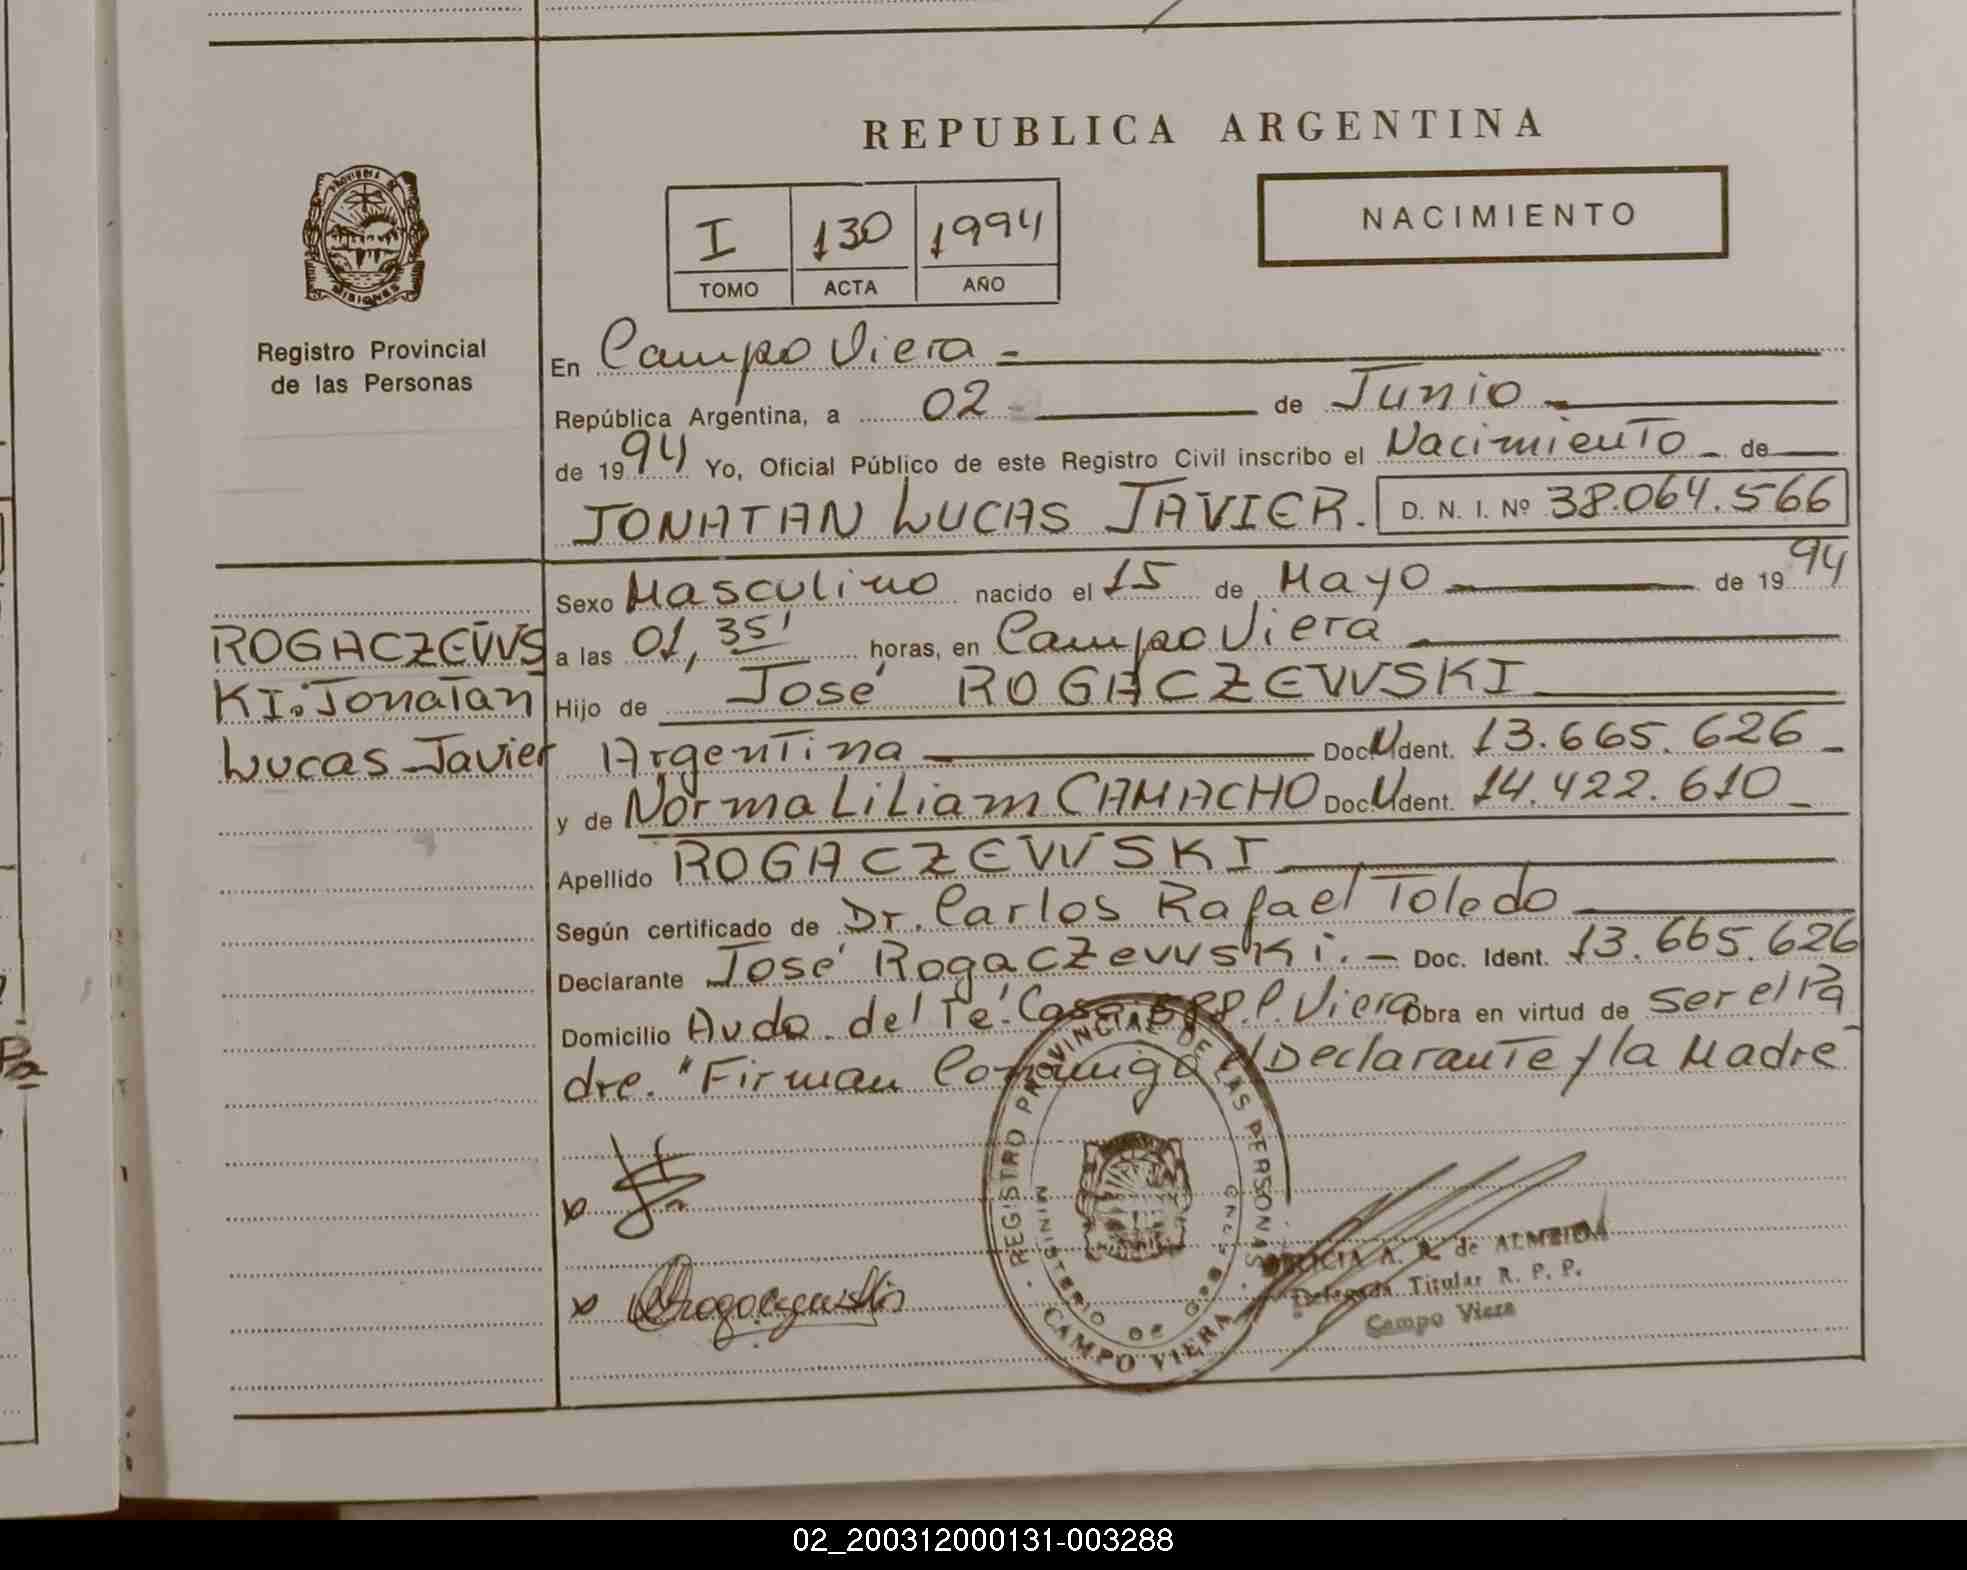 REPUBLICA ARGENTINA
PROVINCIA DE
MISIONES
I 130 1994
TOMO ACTA AÑO
NACIMIENTO
Registro Provincial
de las Personas
En Campo Viera -
República Argentina, a 02 - de Junio -
de 1994 Yo, Oficial Público de este Registro Civil inscribo el Nacimiento - de
JONATAN LUCAS JAVIER. D. N. I. Nº 38.064.566
Sexo Masculino nacido el 15 de Mayo de 1994
ROGACZEVVS
KI. Jonatan
Lucas Javier
a las 01, 35' horas, en Campo Viera
Hijo de José ROGACZEVVSKI
Argentina Doc. Ident. 13.665.626 -
y de Norma LiLiam CAMACHO Doc. Ident. 14.422.610 -
Apellido ROGACZEVVSKI
Según certificado de Dr. Carlos Rafael Toledo
Declarante José Rogaczevvski. - Doc. Ident. 13.665.626
Domicilio Avda. del Té. Casa P. Viera Obra en virtud de ser el Pa
dre. "Firman Conmigo el Declarante y la Madre
REGISTRO PROVINCIAL DE LAS PERSONAS
MINISTERIO DE GOB
CAMPO VIERA
A. R. de ALMEIDA
Delegada Titular R. P. P.
Campo Viera
02_200312000131-003288